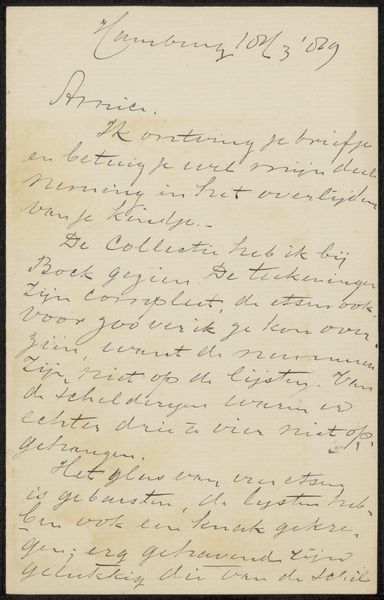 Hamburg 10/3 '89
Amice.
Ik ontving je briefje
en betuig je wel mijn deel-
neming in het overlijden
van je kindje.
De collectie heb ik bij
Bock gezien. De teekeningen
zijn compleet, de etsen ook,
voor zoover ik ze kon over-
zien, want de nummers
zijn niet op de lijsten. Van
de schilderijen waren er
echter drie à vier niet op-
gehangen.
Het glas van vier etsen
is gebarsten, de lijsten heb-
ben ook een knak gekre-
gen; erg gehavend zijn
gelukkig die van de schil